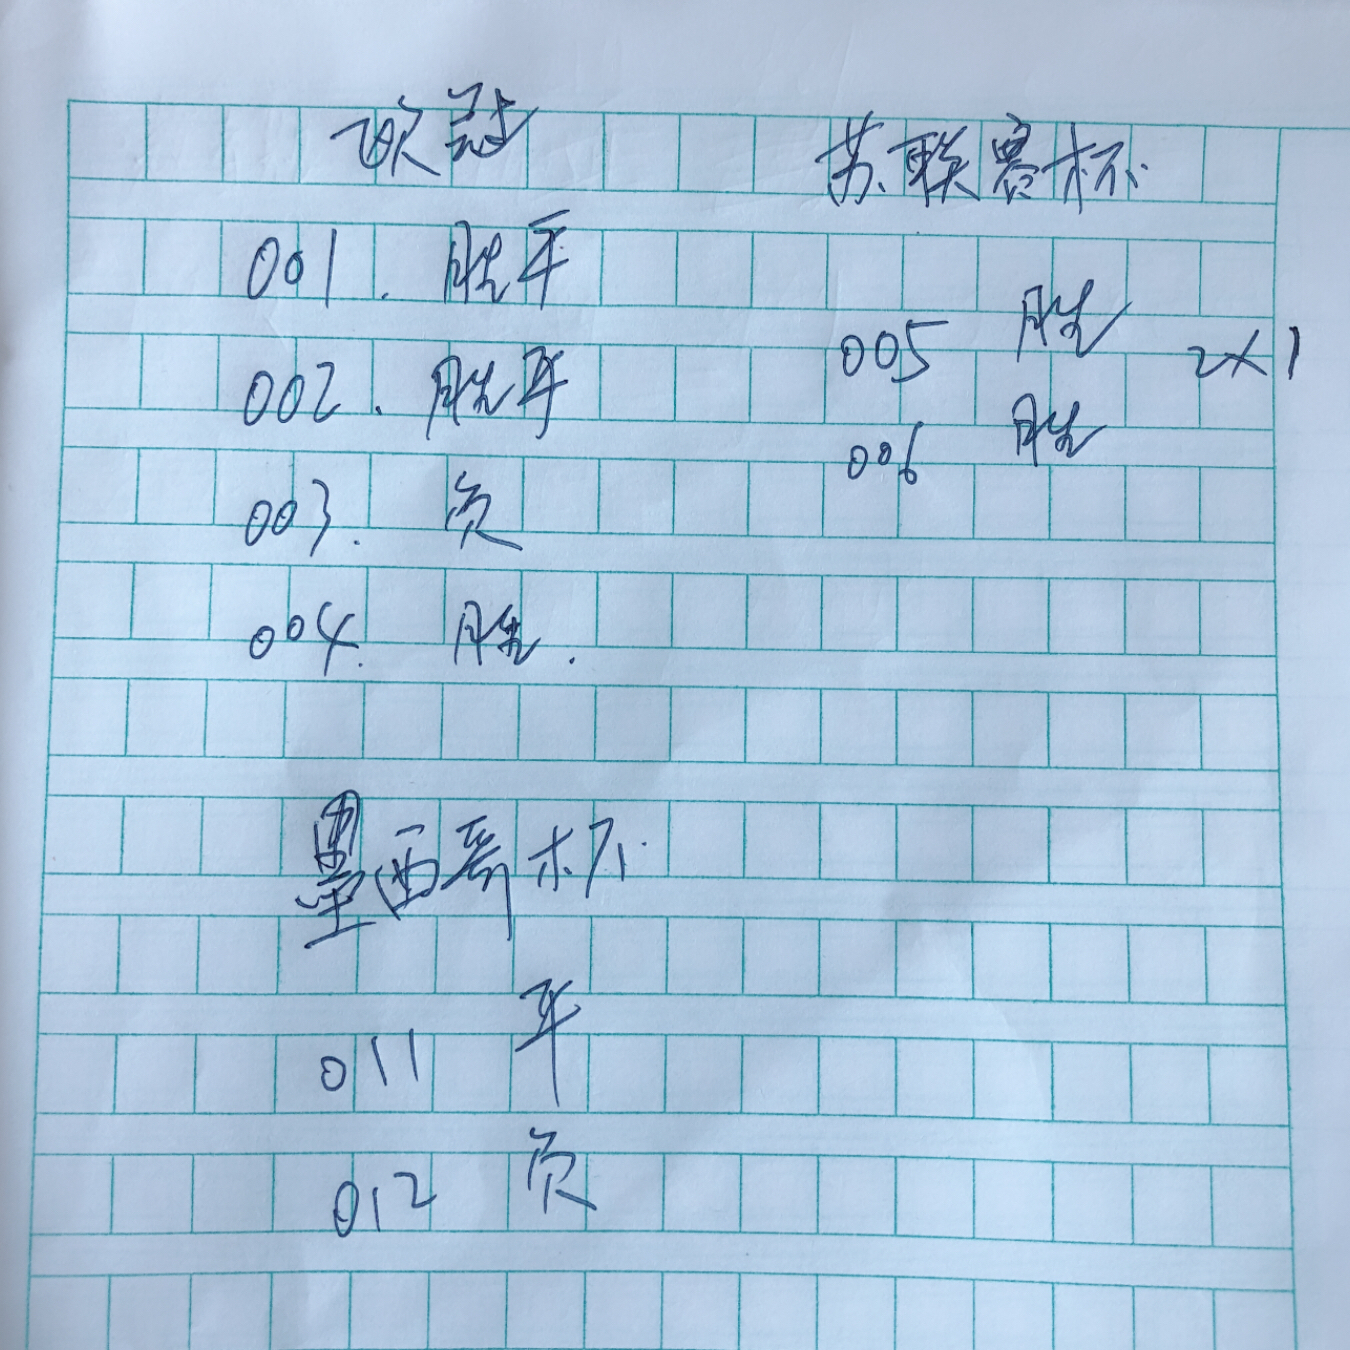 欧冠
001. 胜平
002. 胜平
003. 负
004. 胜.
苏联赛杯
005 胜
2×1
006 胜
墨西哥杯
011 平
012 负